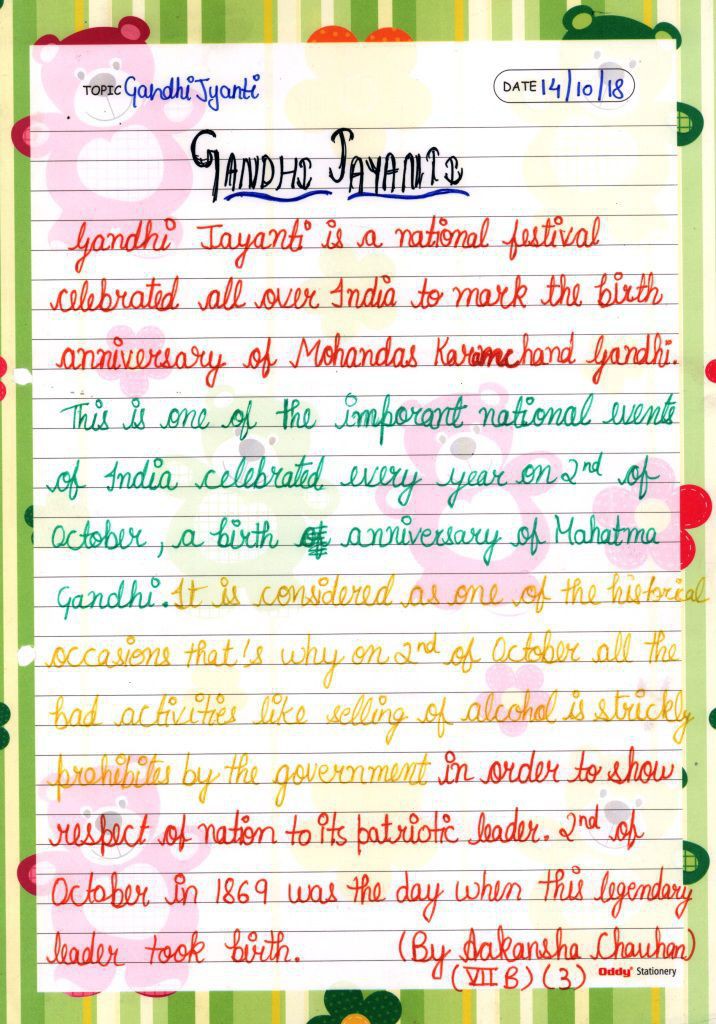 TOPIC Gandhi Jyanti
DATE 14/10/18
GANDHI JAYANTI
Gandhi Jayanti is a national festival
celebrated all over India to mark the birth
anniversary of Mohandas Karamchand Gandhi.
This is one of the imporant national events
of India celebrated every year on 2nd of
October, a birth anniversary of Mahatma
Gandhi. It is considered as one of the historical
occasions that's why on 2nd of October all the
bad activities like selling of alcohol is strickly
prohibites by the government in order to show
respect of nation to its patriotic leader. 2nd of
October in 1869 was the day when this legendary
leader took birth. (By Aakansha Chauhan)
(VII B) (3) Oddy Stationery